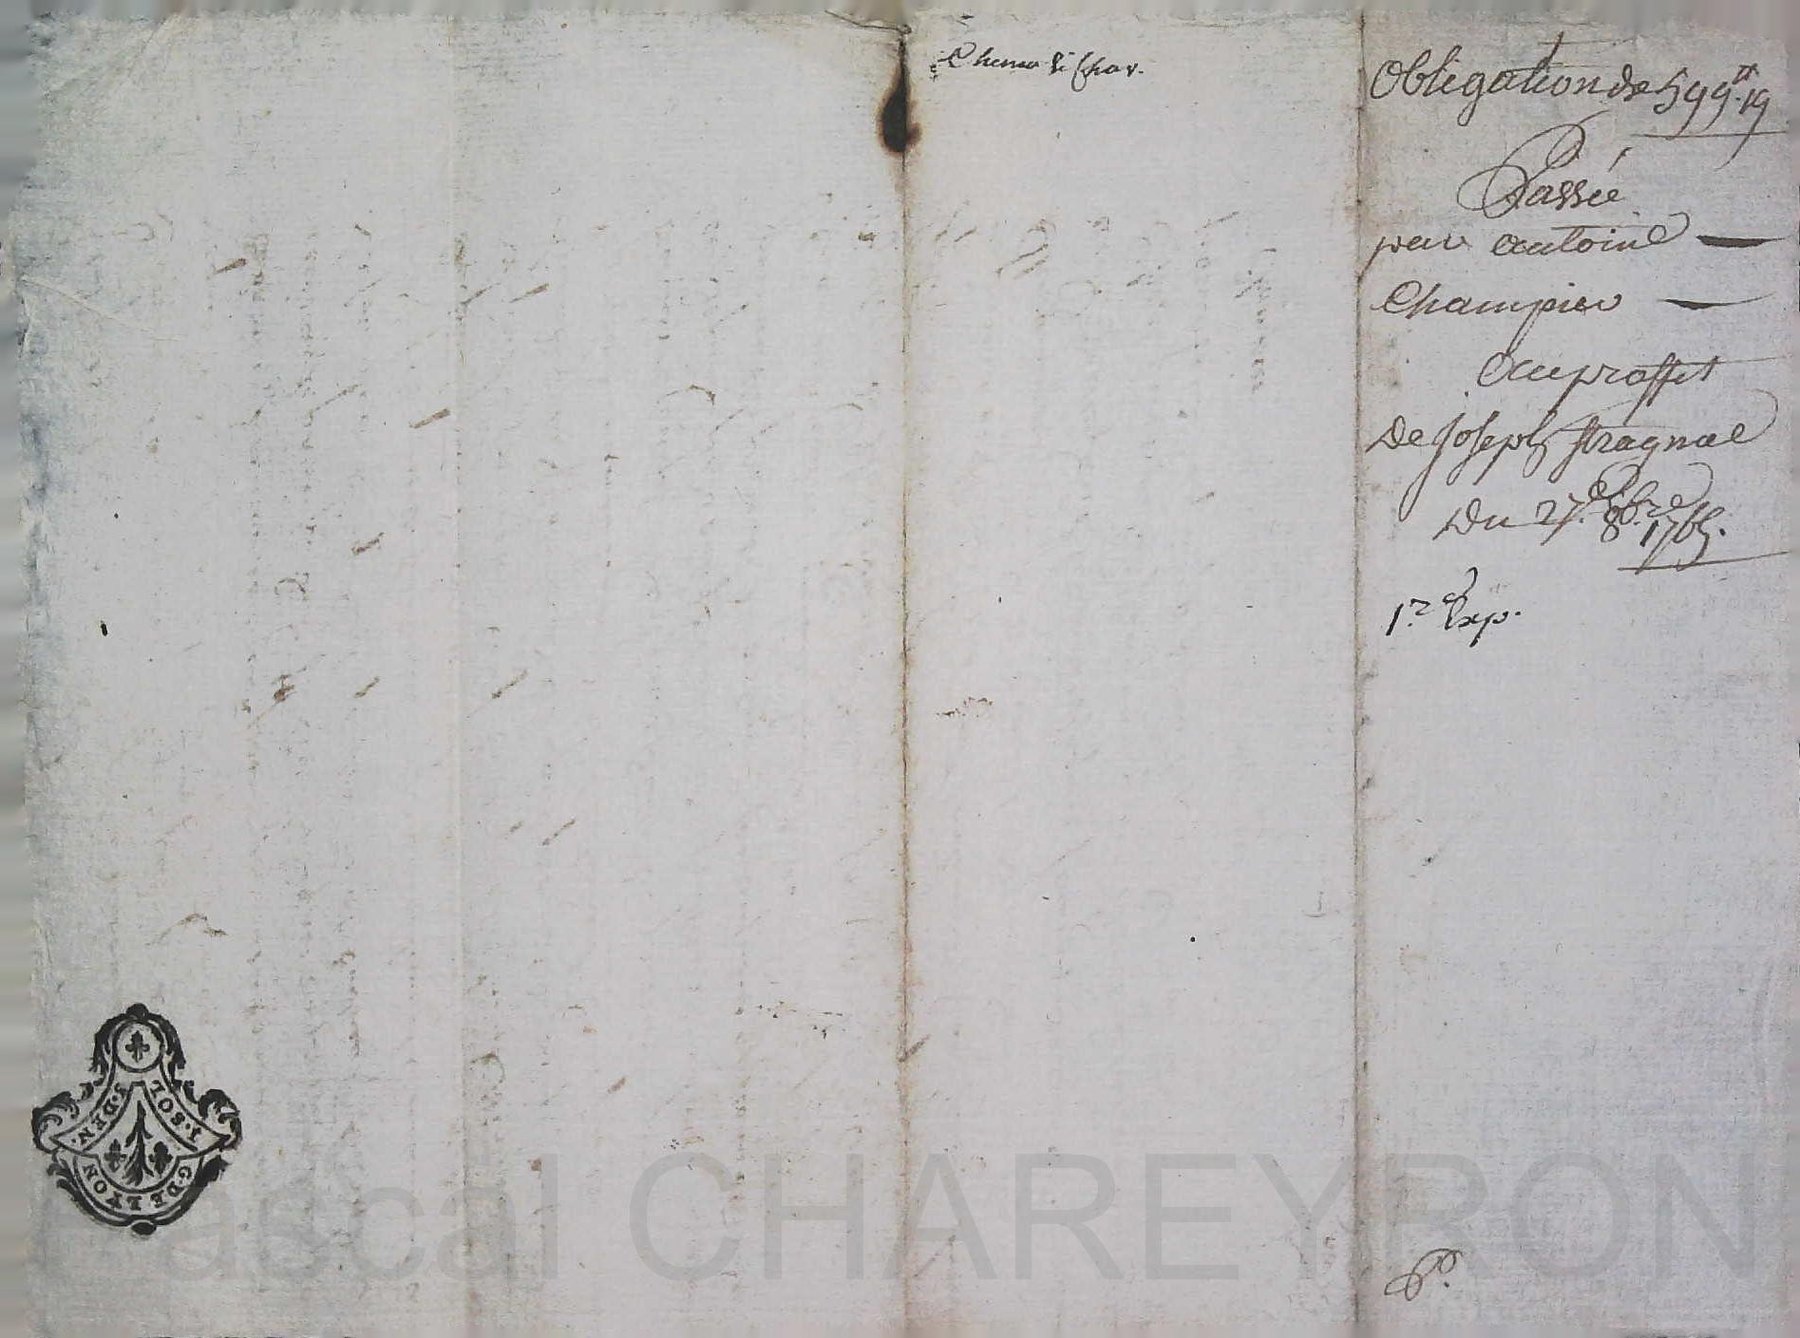 Obligation de 599 ₶ 19
Passée
par antoine
Champier
au proffit
de Joseph fragnal
du 27.e 8bre 1765.
1.re Exp.
1·SOL
5·DEN·
G·DE LYON
Pascal CHAREYRON